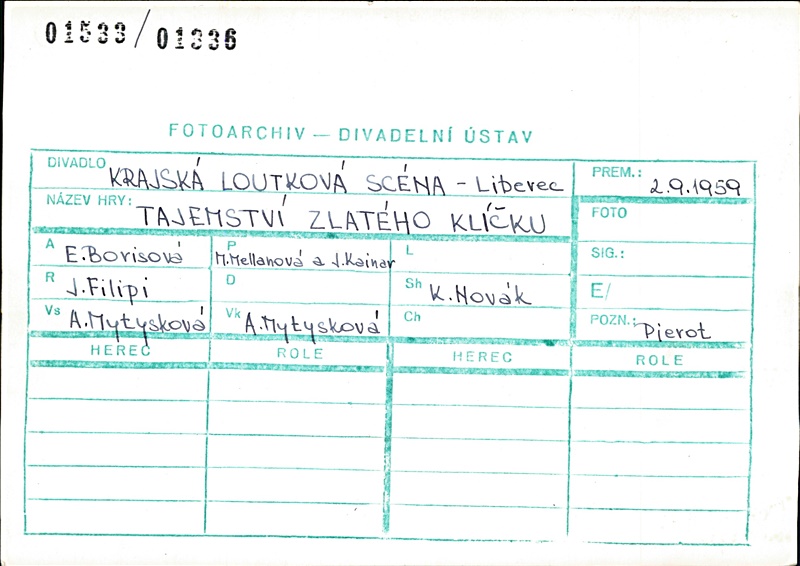 01533/01336
FOTOARCHIV — DIVADELNÍ ÚSTAV
DIVADLO KRAJSKÁ LOUTKOVÁ SCÉNA - Liberec
PREM.: 2.9.1959
NÁZEV HRY: TAJEMSTVÍ ZLATÉHO KLÍČKU
FOTO
A E.Borisová
P M.Mellanová a J.Kainar
L
SIG.:
R J.Filipi
D
Sh K.Novák
E/
Vs A.Mytysková
Vk A.Mytysková
Ch
POZN.: Pierot
HEREC ROLE HEREC ROLE